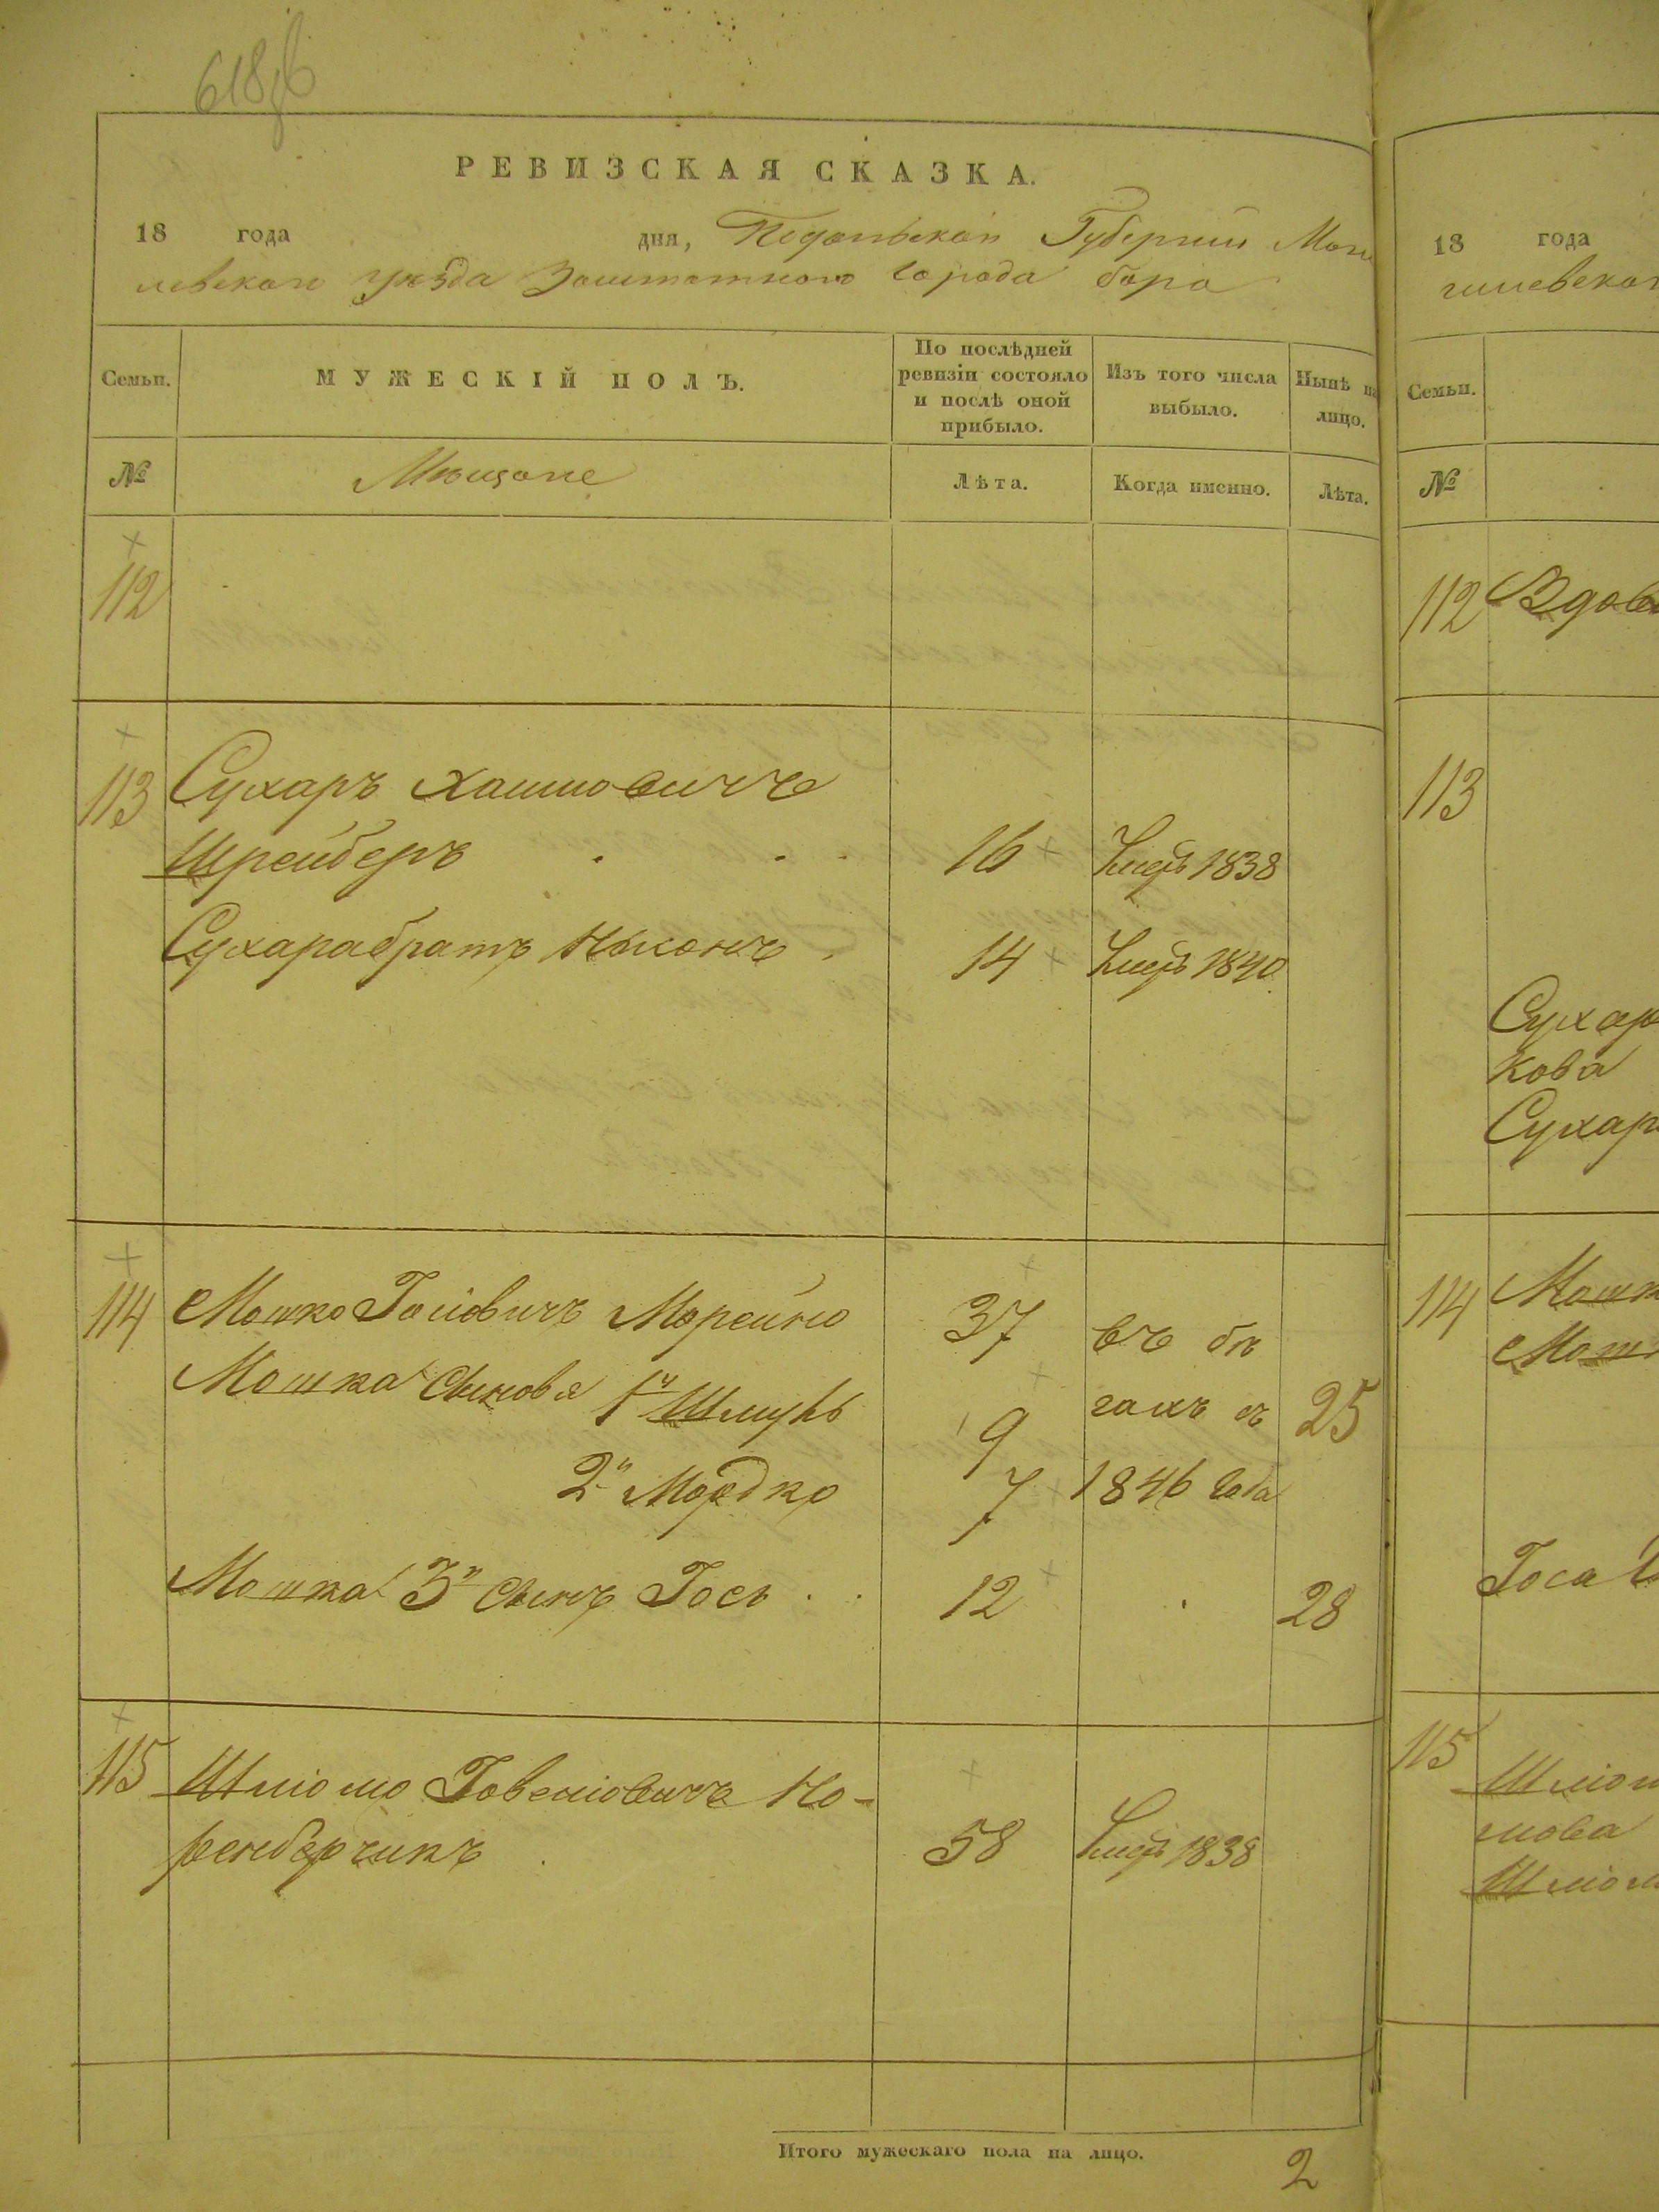 618об
РЕВИЗСКАЯ СКАЗКА.
18 года дня, Подольской Губернии Моги
левскаго уѣзда Заштатного города бара
Семьи.
МУЖЕСКІЙ ПОЛЪ.
По послѣдней
ревизіи состояло
и послѣ оной
прибыло.
Изъ того числа
выбыло.
Нынѣ на
лицо.
№
Мѣщане
Лѣта.
Когда именно.
Лѣта.
112
113 Сухаръ Хаимовичъ
Шрейберъ 16 1838
Сухара братъ 14 1840
114 Мошко 37 въ бѣ
Мошка Сыновья 1й Шмуль 9 гахъ съ 25
2й Мордко 7 1846 года
Мошка 3й Сынъ Іось 12 28
115 Шліомо Но-
ренберчикъ 58 1838
Итого мужескаго пола на лицо. 2
18 года
гилевского
Семьи.
№
112 Вдова
113
Сухар
кова
Сухар
114 Мошк
Мошк
Іоса
115 Шліом
мова
Шліом